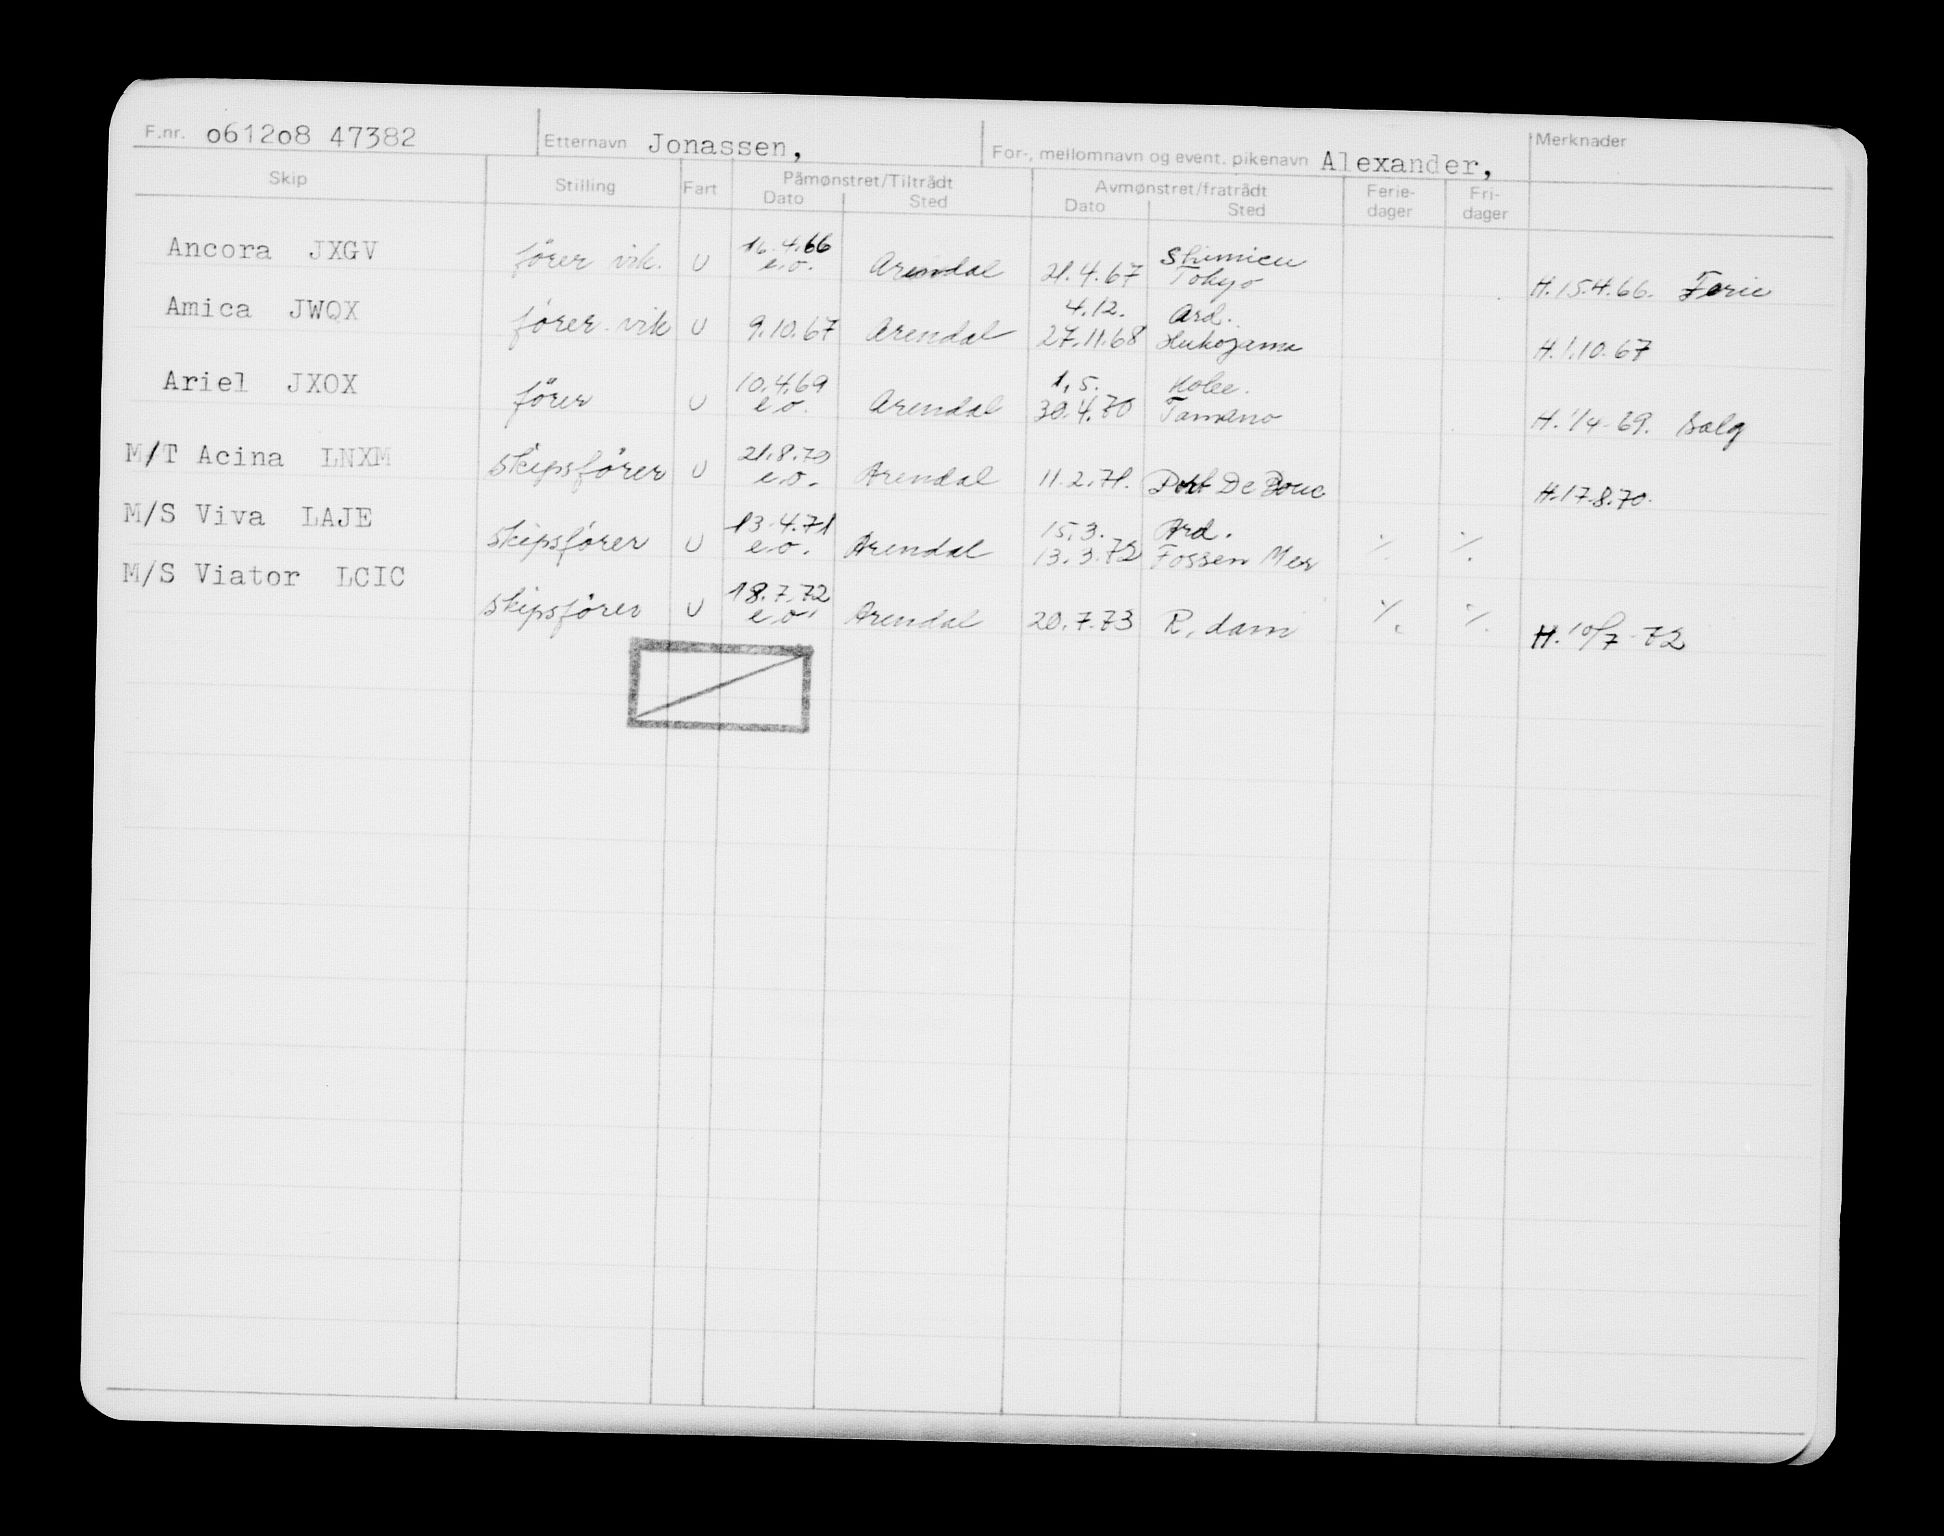 F.nr. o612o8 47382 Etternavn Jonassen, For-, mellomnavn og event. pikenavn Alexander, Merknader
Skip Stilling Fart Påmønstret/Tiltrådt Avmønstret/fratrådt Ferie- Fri-
Dato Sted Dato Sted dager dager
16.4.66 Shimicu
Ancora JXGV fører vik. U e.o. Arendal 21.4.67 Tokyo H.15.4.66. Ferie
4.12. Ard.
Amica JWQX fører vik U 9.10.67 Arendal 27.11.68 H.1.10.67
10.4.69 1.5. Kobe.
Ariel JXOX fører U e.o. Arendal 30.4.70 Tamano H.1/4-69. Salg
21.8.70
M/T Acina LNXM Skipsfører U e.o. Arendal 11.2.71. Port De Bouc H.17.8.70.
13.4.71 15.3. Ard.
M/S Viva LAJE Skipsfører U e.o. Arendal 13.3.72 Fossen Mer ./. ./.
18.7.72
M/S Viator LCIC Skipsfører U e.o. Arendal 20.7.73 R.dam ./. ./. H.10/7-72